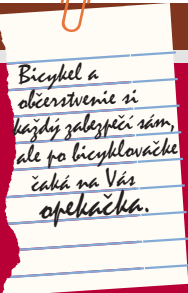 Bicykel a
občerstvenie si
každý zabezpečí sám,
ale po bicyklovačke
čaká na Vás
opekačka.